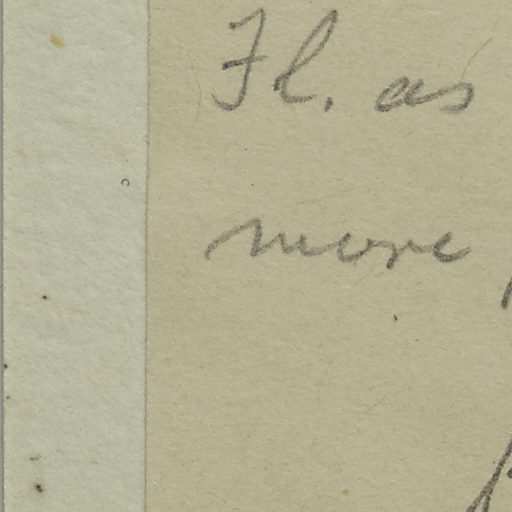 Fl. as
more